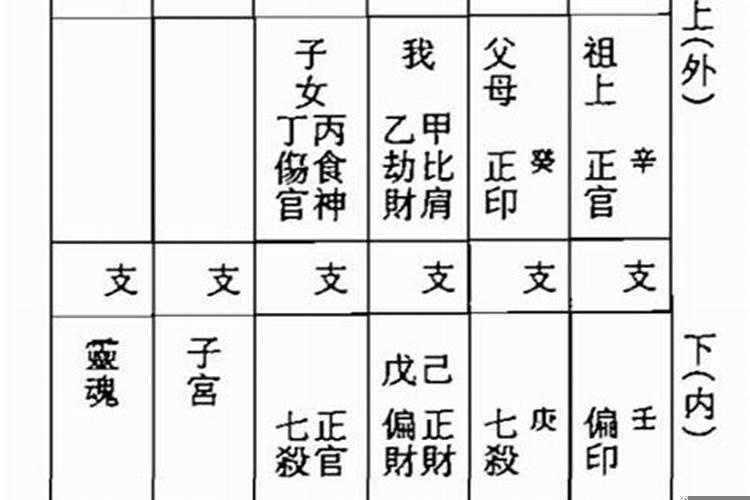 上(外)
祖上 正官
辛
父母 正印
癸
我
甲比肩
乙劫財
子女
丙食神
丁傷官
支
支
支
支
支
支
下(内)
偏印
壬
七殺
庚
己正財
戊偏財
正官
七殺
子宮
靈魂